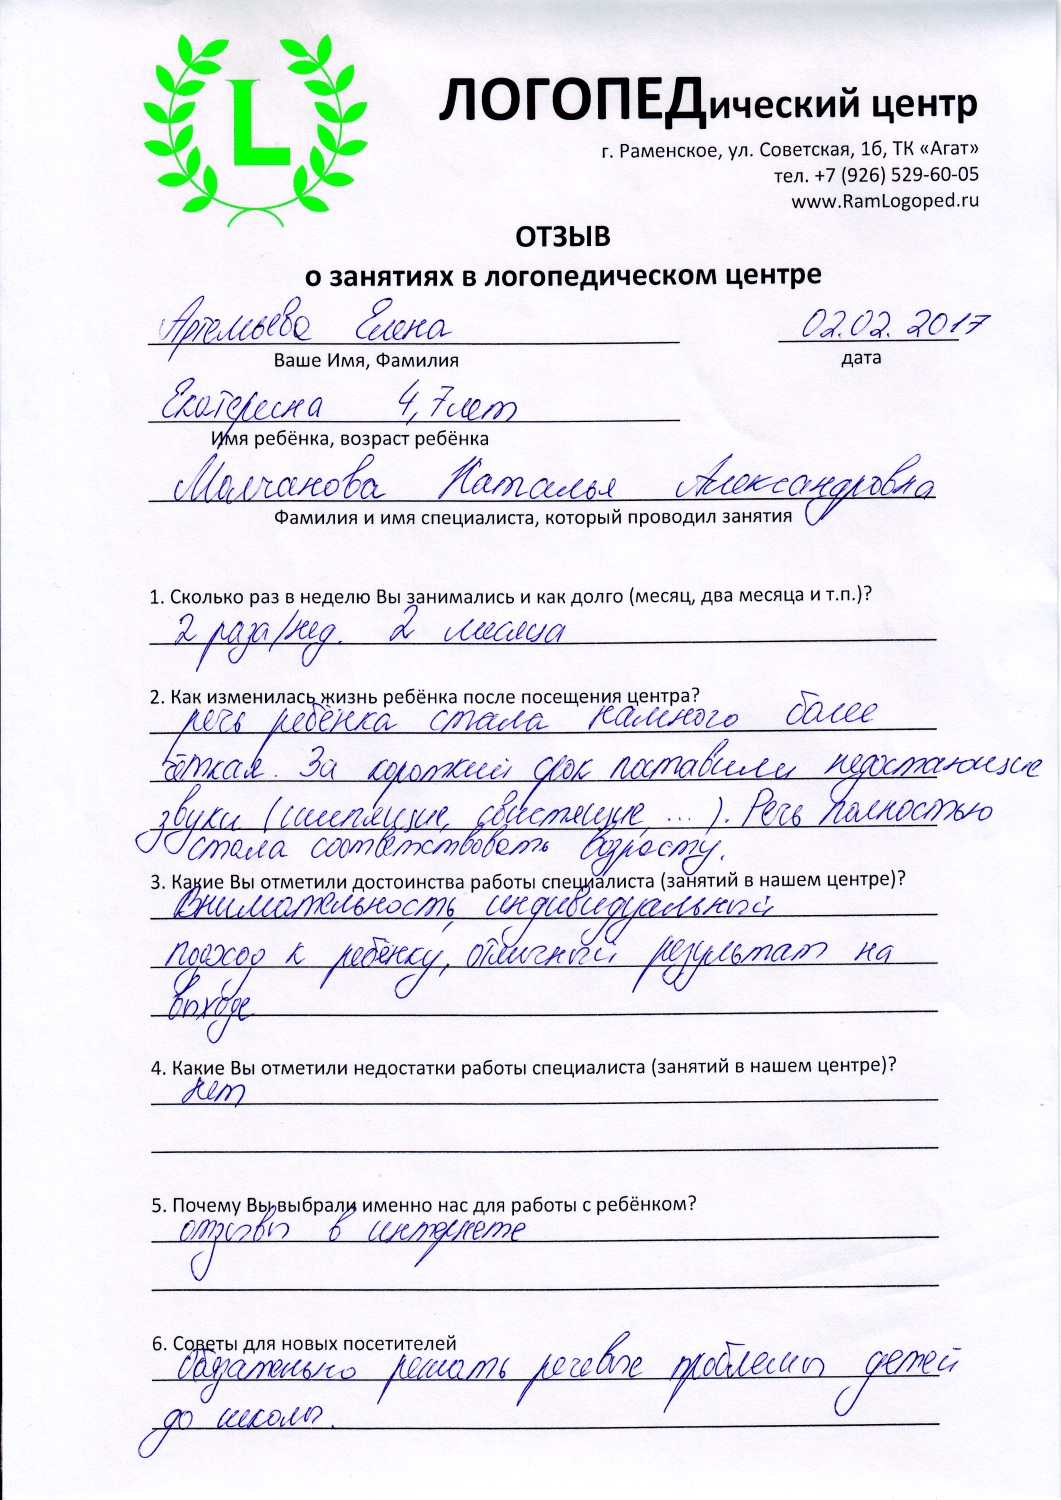 L
ЛОГОПЕДический центр
г. Раменское, ул. Советская, 1б, ТК «Агат»
тел. +7 (926) 529-60-05
www.RamLogoped.ru
ОТЗЫВ
о занятиях в логопедическом центре
Артемьева Елена 02.02.2017
Ваше Имя, Фамилия дата
Екатерина 4,7 лет
Имя ребёнка, возраст ребёнка
Молчанова Наталья Александровна
Фамилия и имя специалиста, который проводил занятия
1. Сколько раз в неделю Вы занимались и как долго (месяц, два месяца и т.п.)?
2 раза/нед. 2 месяца
2. Как изменилась жизнь ребёнка после посещения центра?
речь ребёнка стала намного более
чёткая. За короткий срок поставили недостающие
звуки (шипящие, свистящие, ...). Речь полностью
стала соответствовать возрасту.
3. Какие Вы отметили достоинства работы специалиста (занятий в нашем центре)?
Внимательность, индивидуальный
подход к ребёнку, отличный результат на
выходе
4. Какие Вы отметили недостатки работы специалиста (занятий в нашем центре)?
нет
5. Почему Вы выбрали именно нас для работы с ребёнком?
отзывы в интернете
6. Советы для новых посетителей
обязательно решать речевые проблемы детей
до школы.